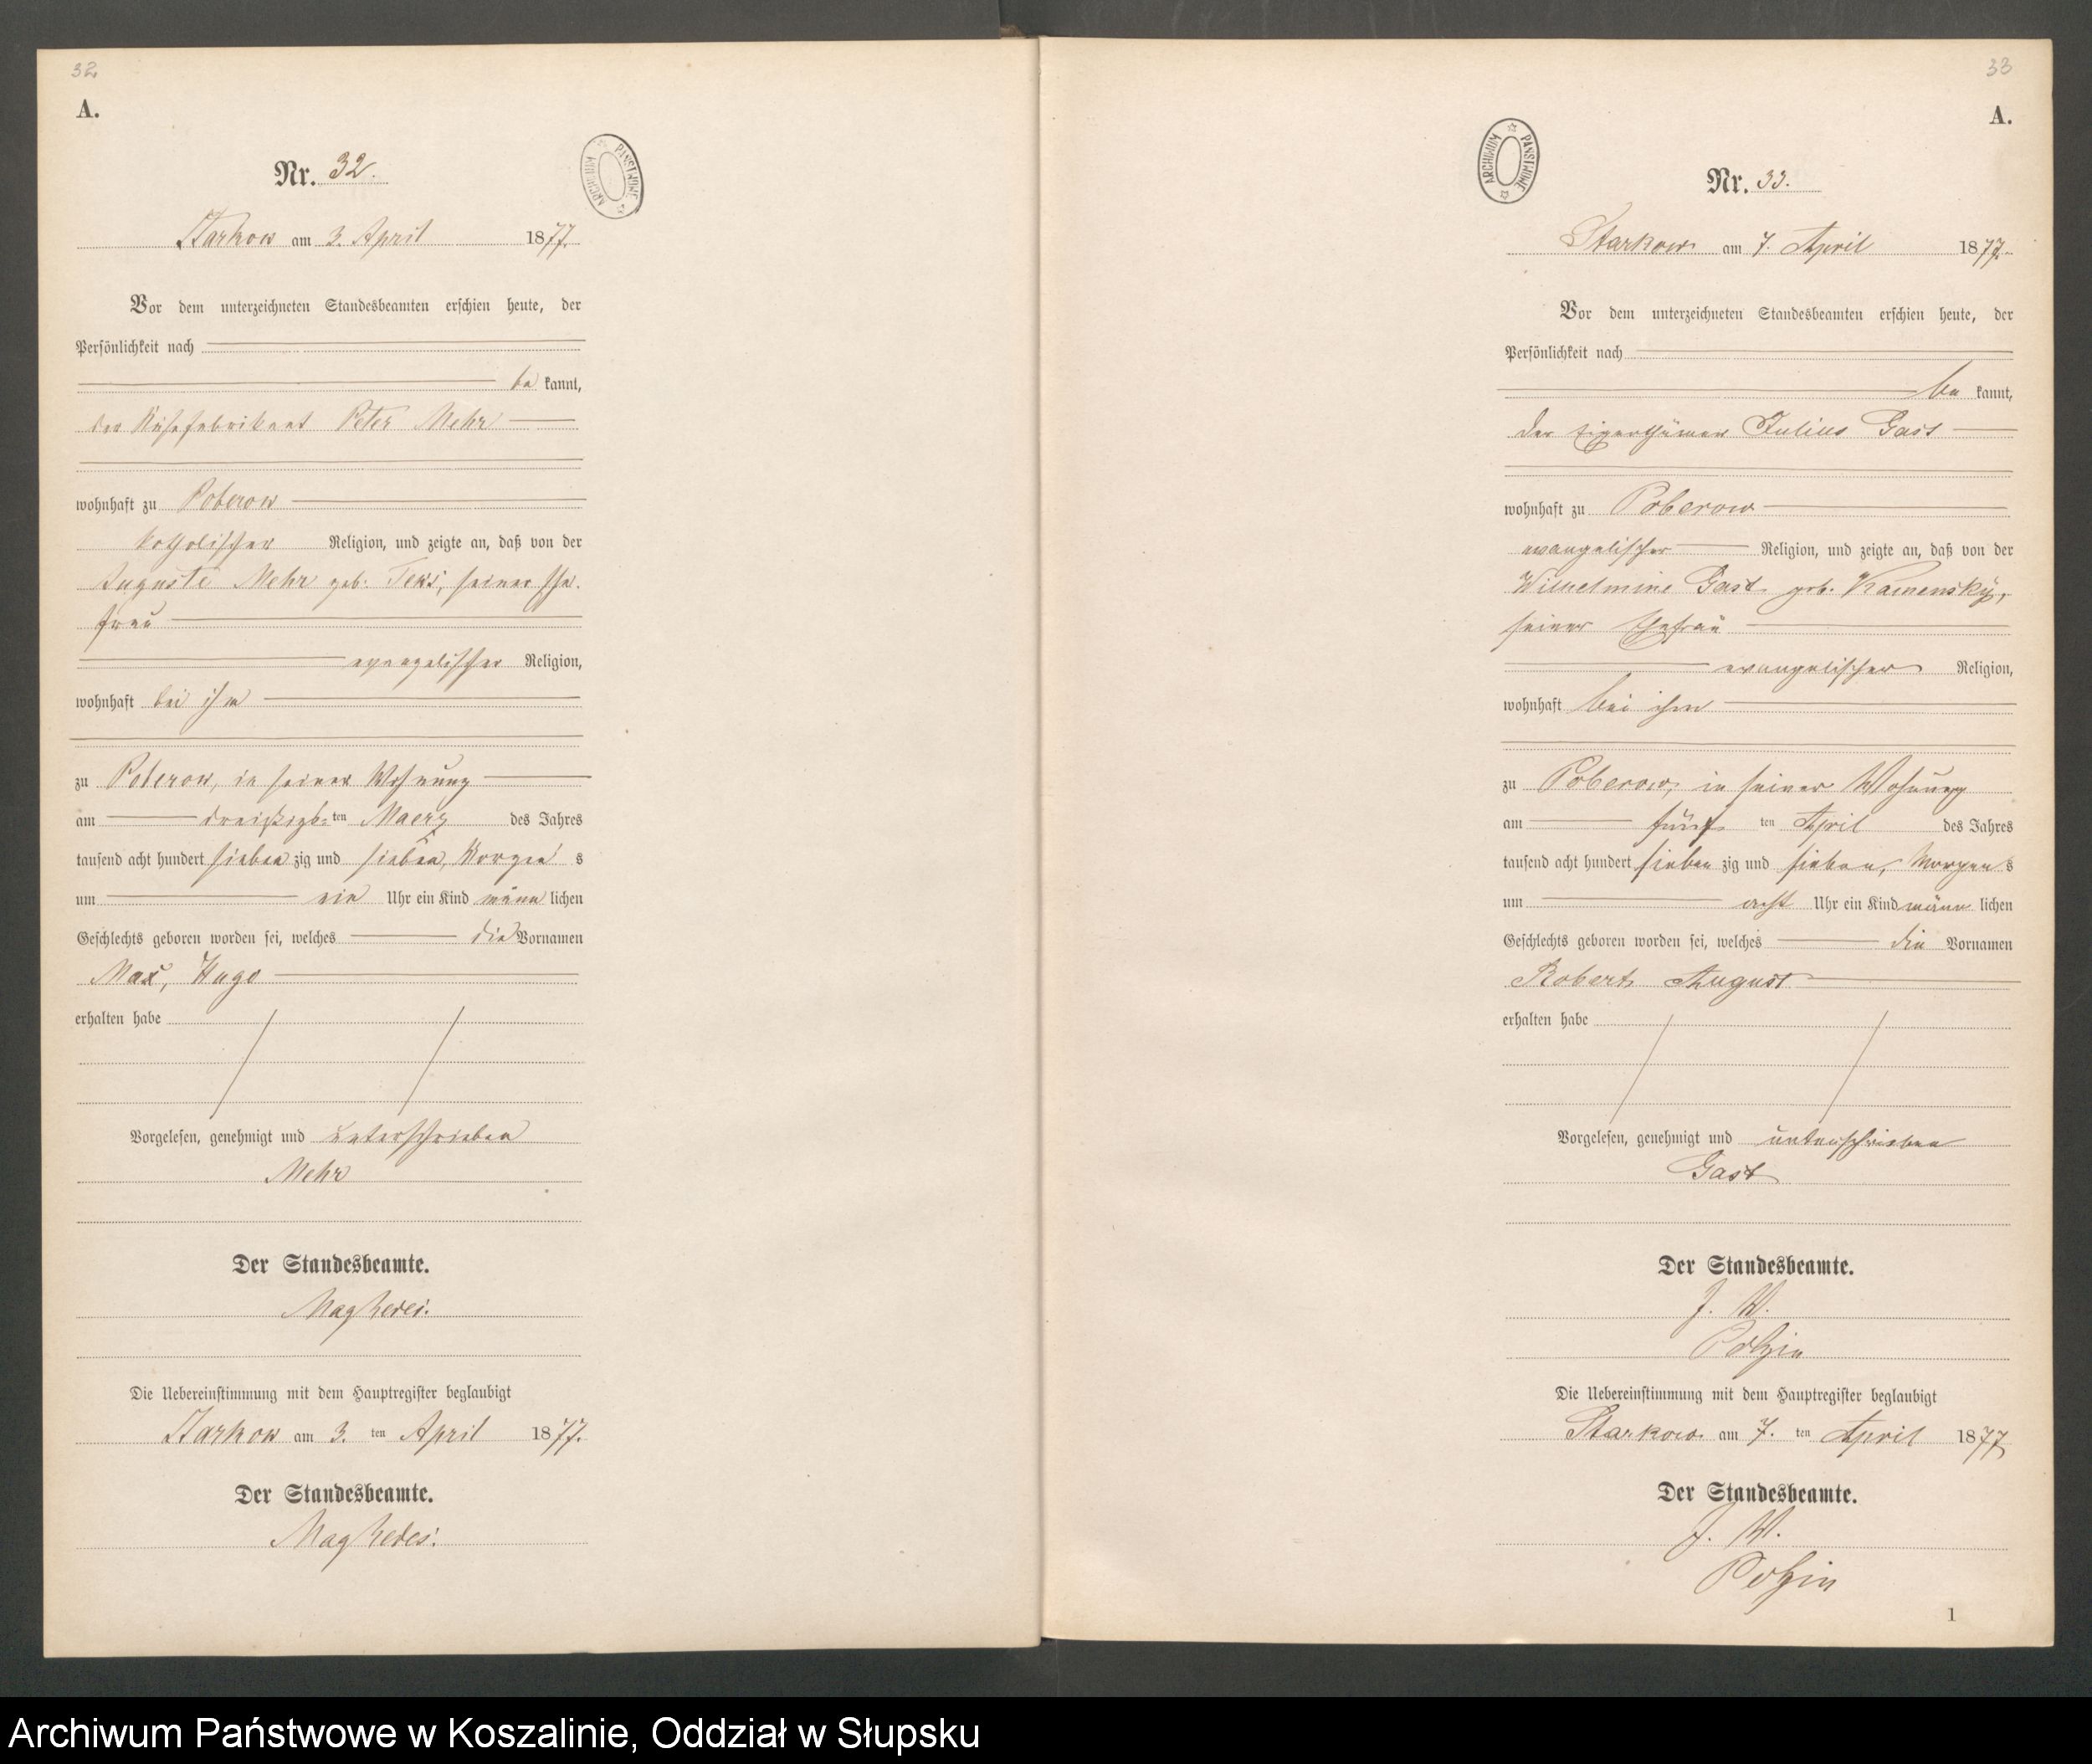 32
A.
Nr. 32.
ARCHIWUM PAŃSTWOWE
Starkow am 3. April 1877.
Vor dem unterzeichneten Standesbeamten erschien heute, der
Persönlichkeit nach
be kannt,
der Käsefabrikant Peter Mehr
wohnhaft zu Poberow
katholischer Religion, und zeigte an, daß von der
Auguste Mehr geb. seiner Ehe-
frau
evangelischer Religion,
wohnhaft bei ihm
zu Poberow, in seiner Wohnung
am dreißigs ten Maerz des Jahres
tausend acht hundert sieben zig und sieben, Morgen s
um ein Uhr ein Kind männ lichen
Geschlechts geboren worden sei, welches die Vornamen
Max, Hugo
erhalten habe
Vorgelesen, genehmigt und unterschrieben
Mehr
Der Standesbeamte.
Die Uebereinstimmung mit dem Hauptregister beglaubigt
Starkow am 3. ten April 1877.
Der Standesbeamte.
33
A.
ARCHIWUM PAŃSTWOWE
Nr. 33.
Starkow am 7. April 1877.
Vor dem unterzeichneten Standesbeamten erschien heute, der
Persönlichkeit nach
be kannt,
der Eigenthümer Julius Gast
wohnhaft zu Poberow
evangelischer Religion, und zeigte an, daß von der
Wilhelmine Gast geb. Kamensky,
seiner Ehefrau
evangelischer Religion,
wohnhaft bei ihm
zu Poberow, in seiner Wohnung
am fünf ten April des Jahres
tausend acht hundert sieben zig und sieben, Morgen s
um acht Uhr ein Kind männ lichen
Geschlechts geboren worden sei, welches die Vornamen
Robert August
erhalten habe
Vorgelesen, genehmigt und unterschrieben
Gast
Der Standesbeamte.
J. V.
Polzin
Die Uebereinstimmung mit dem Hauptregister beglaubigt
Starkow am 7. ten April 1877
Der Standesbeamte.
J. V.
Polzin
1
Archiwum Państwowe w Koszalinie, Oddział w Słupsku